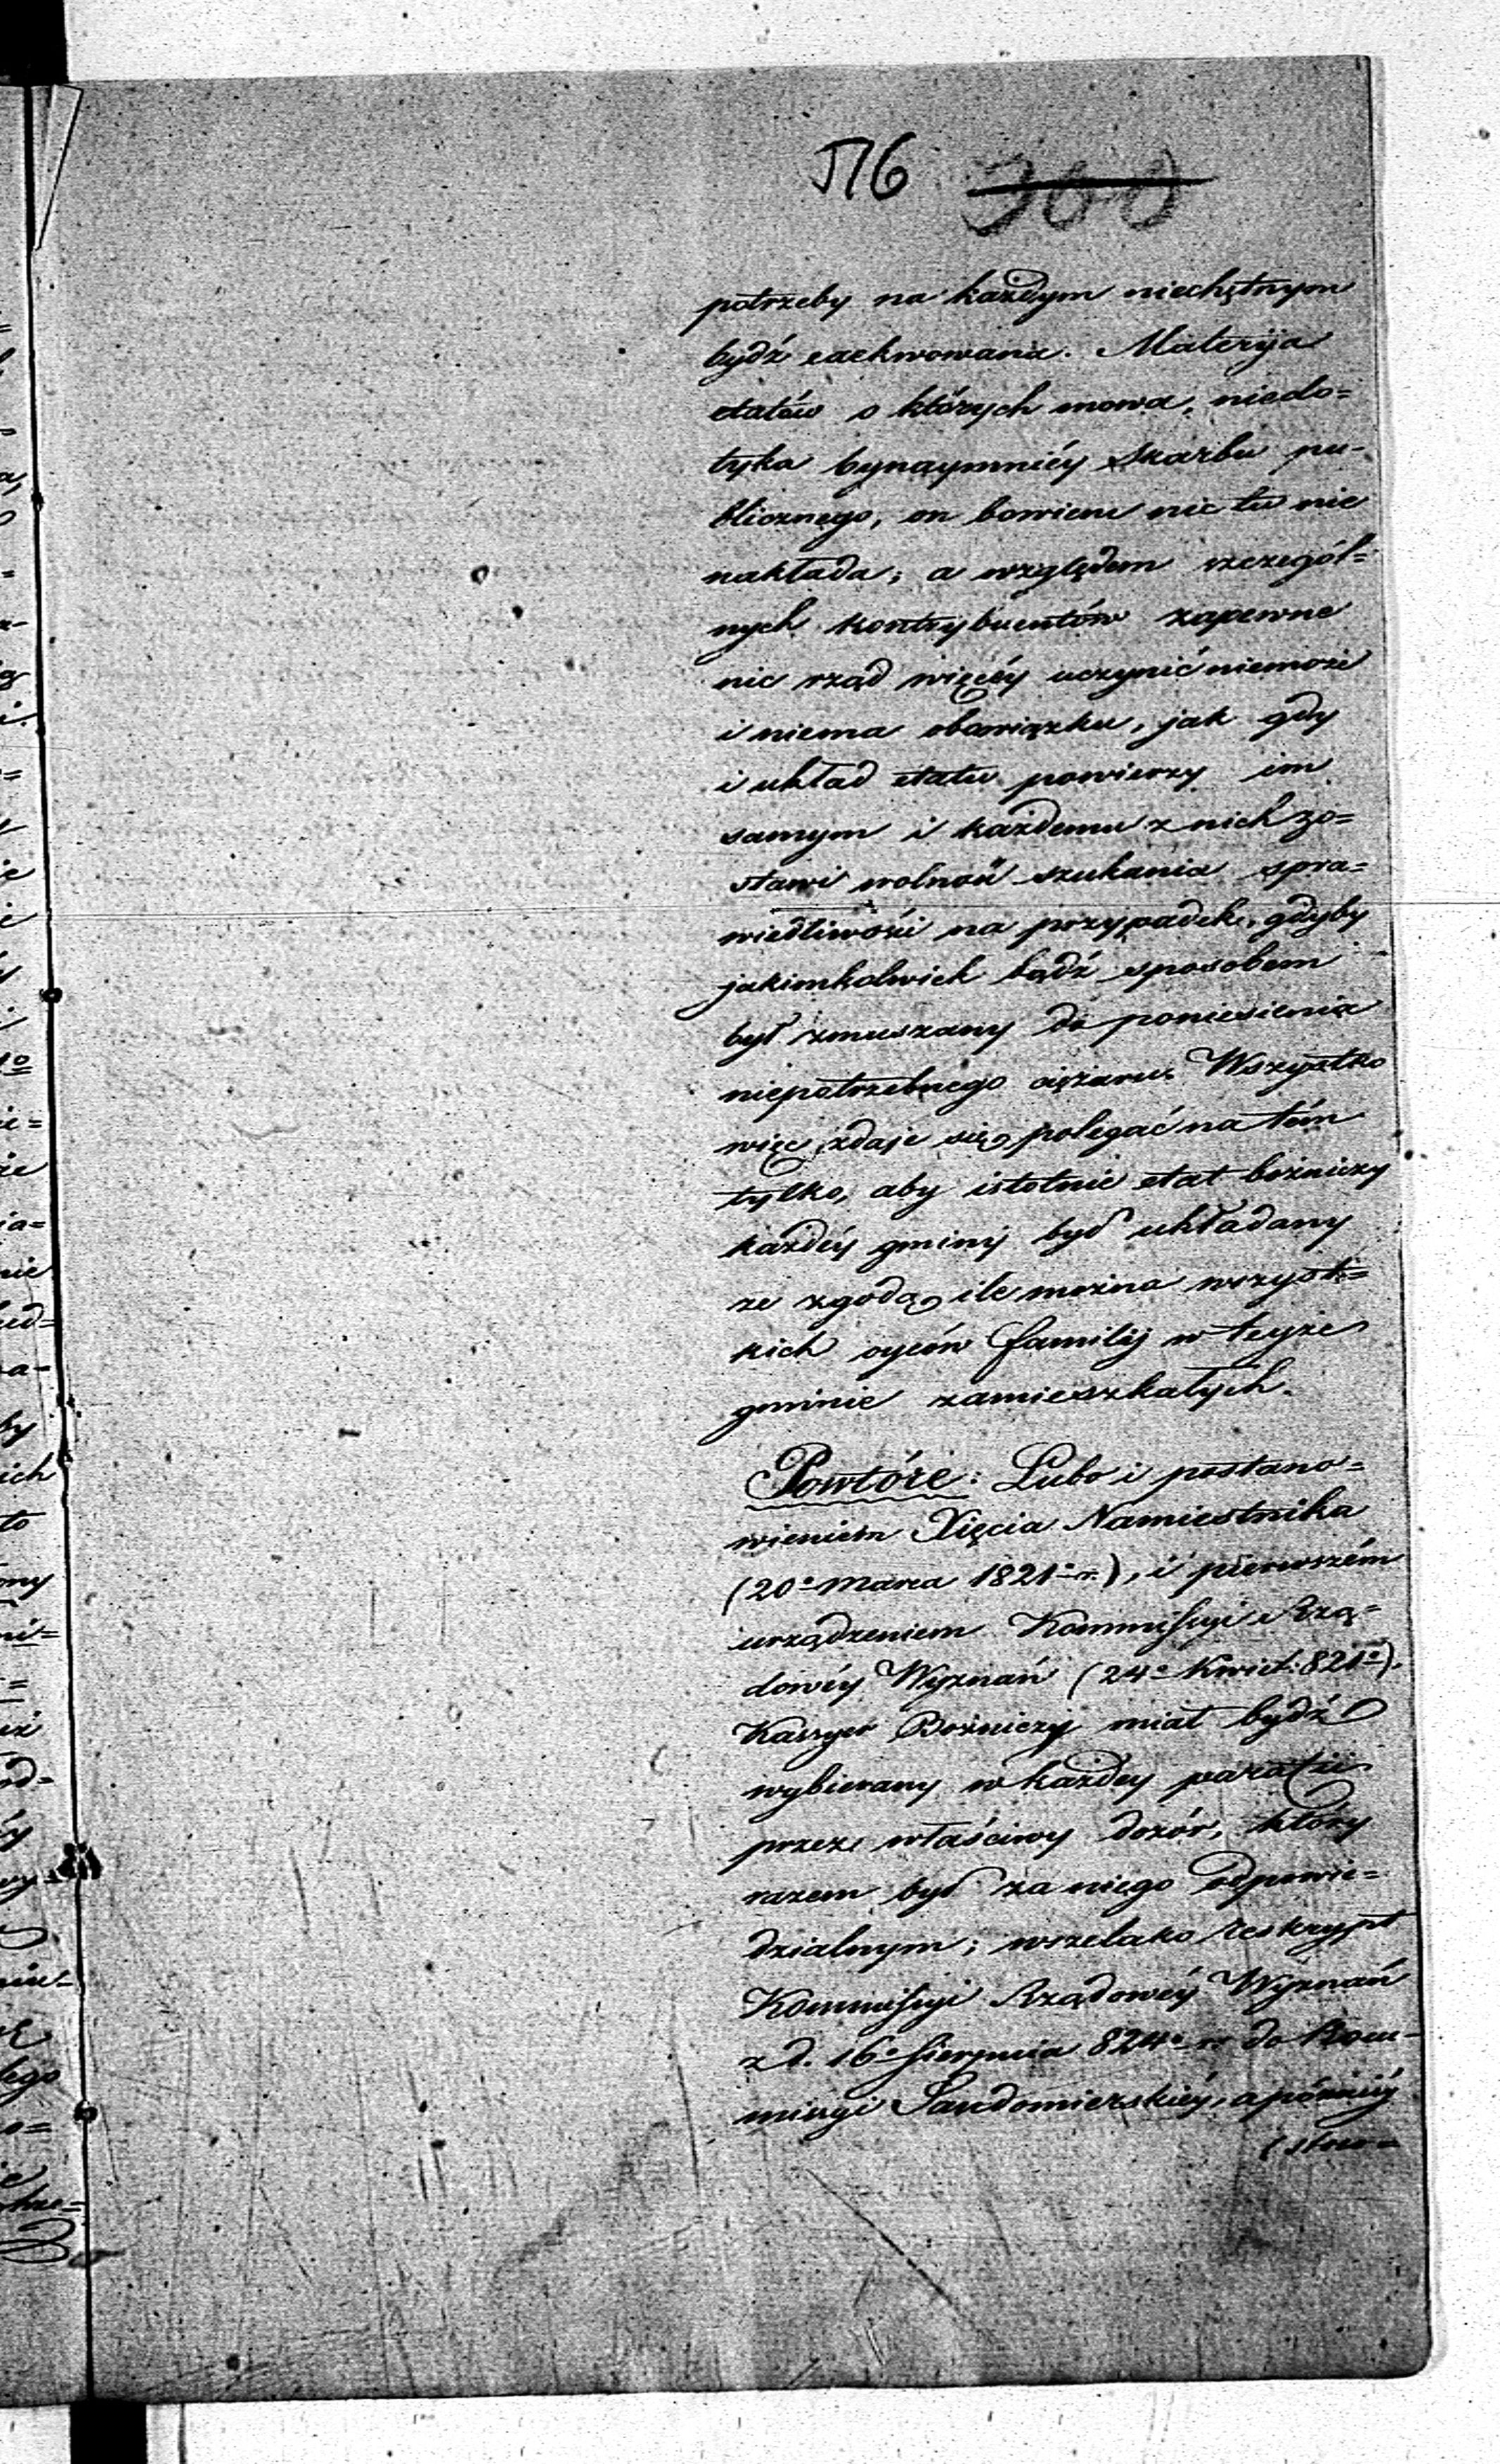 576 300
potrzeby na każdym niechętnym
bydź exekwowana. Materyja
etatów o których mowa, niedo=
tyka bynaymniéy Skarbu pu-
blicznego, on bowiem nic tu nie
nakłada; a względem szczegól=
nych kontrybuentów zapewne
nic rząd więcéy uczynić niemoże
i niema obowiązku, jak gdy
i układ etatu powierzy im
samym i każdemu z nich zo=
stawi wolność szukania spra=
wiedliwości na przypadek, gdyby
jakimkolwiek bądź sposobem
był zmuszany do poniesienia
niepotrzebnego ciężaru. Wszystko
więc zdaje się polegać na tém
tylko, aby istotnie etat bożniczy
każdéy gminy był układany
ze zgodą ile można wszyst=
kich oyców familij w teyże
gminie zamieszkałych.
Powtóre: Lubo i postano=
wieniem Xięcia Namiestnika
(20º Marca 1821º r.), i pierwszém
urządzeniem Kommissyi Rzą=
dowéy Wyznań (24º Kwiet: 821º).
Kassyer Bożniczy miał bydź
wybierany w każdey parafii
przez właściwy dozór, który
razem był za niego odpowie=
dzialnym; wszelako reskrypt
Kommissyi Rządowéy Wyznań
z d. 16º Sierpnia 824º r. do Kom=
missyi Sandomierskiéy, a późniéy
(stoso=